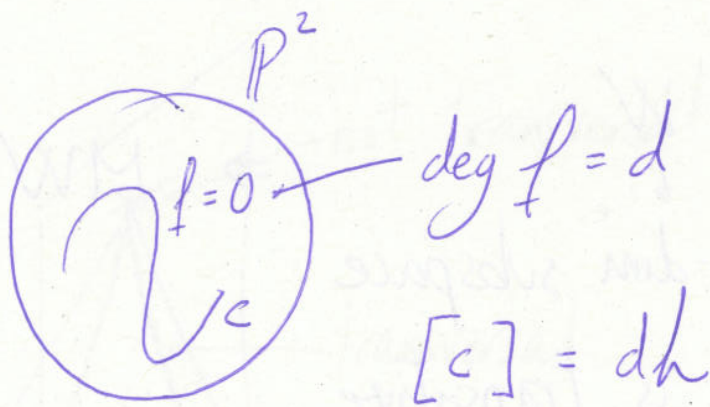 ℙ²
f = 0
deg f = d
c
[c] = dh